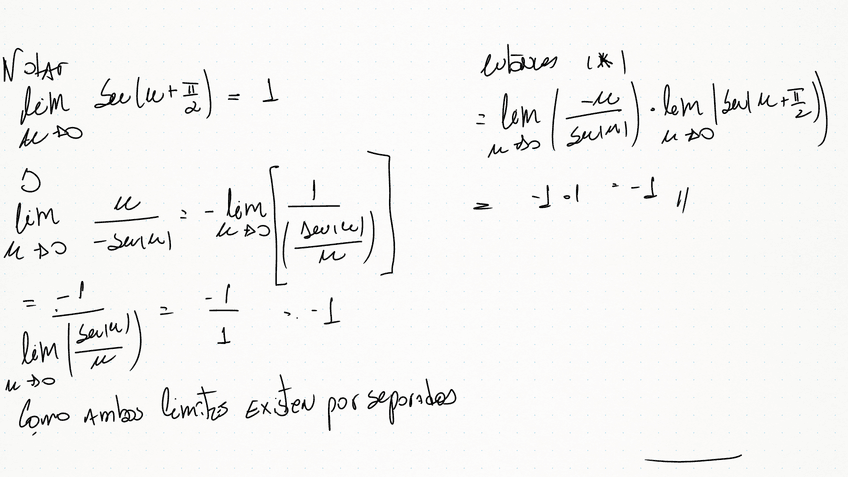 Notar
lim Sen(u + π/2) = 1
u→0
lim u/-sen(u) = -lim [1/(sen(u)/u)]
u→0 u→0
= -1/lim (sen(u)/u) = -1/1 = -1
u→0
Como ambos limites existen por separados
entonces (*)
= lim (-u/sen(u)) · lim (sen(u + π/2))
u→0 u→0
= -1 · 1 = -1 //